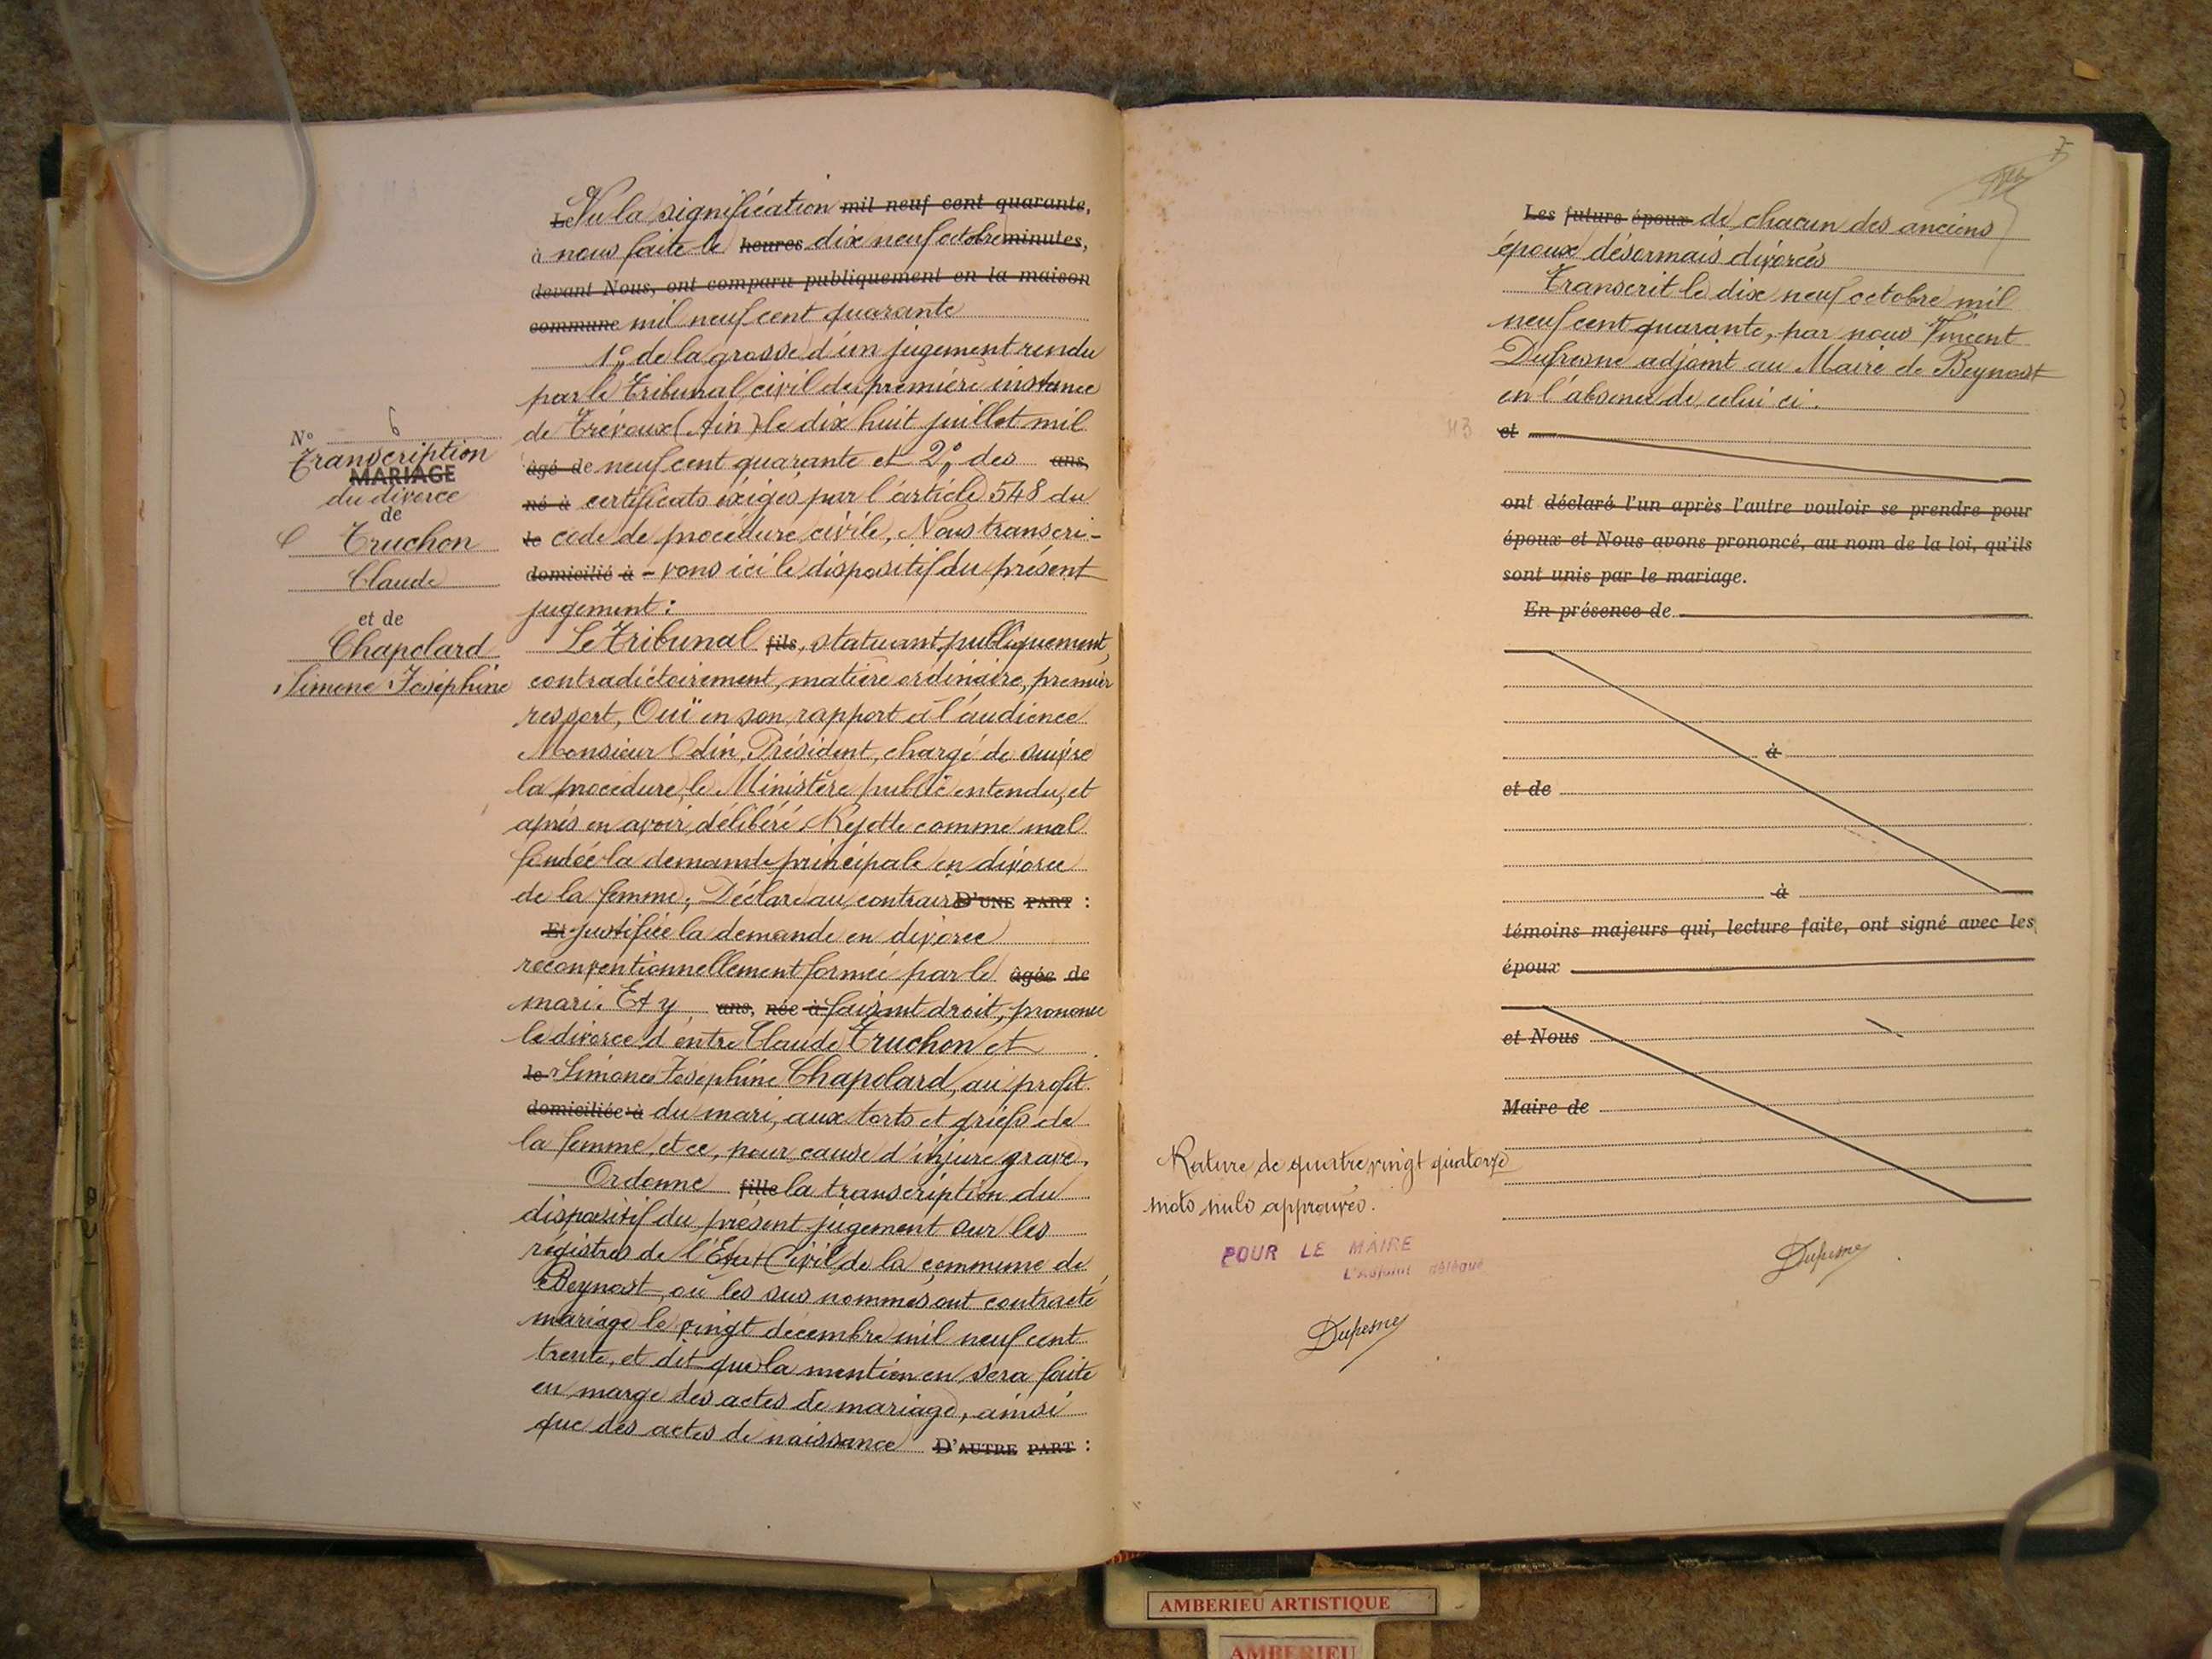 N° 6
Transcription
MARIAGE
du divorce
de
Truchon
Claude
et de
Chapolard
Simone Joséphine
Le Vu la signification mil neuf cent quarante,
à nous faite le heures dix neuf octobre minutes,
devant Nous, ont comparu publiquement en la maison
commune mil neuf cent quarante
1° de la grosse d'un jugement rendu
par le Tribunal civil de première instance
de Trévoux (Ain) le dix huit juillet mil
âgé de neuf cent quarante et 2° des ans,
né à certificats exigés par l'article 548 du
le code de procédure civile, Nous transcri-
domicilié à -vons ici le dispositif du présent
jugement :
Le Tribunal fils, statuant publiquement,
contradictoirement, matière ordinaire, premier
ressort, Ouï en son rapport à l'audience
Monsieur Odin, Président, chargé de suivre
la procédure, le Ministère public entendu, et
après en avoir délibéré Rejette comme mal
fondée la demande principale en divorce
de la femme ; Déclare au contraire D'UNE PART :
Et justifiée la demande en divorce
reconventionnellement formée par le âgée de
mari. Et y ans, née à faisant droit, prononce
le divorce d'entre Claude Truchon et
le Simone Joséphine Chapolard, au profit
domiciliée à du mari, aux torts et griefs de
la femme, et ce, pour cause d'injure grave.
Ordonne fille la transcription du
dispositif du présent jugement sur les
régistres de l'Etat Civil de la commune de
Beynost, où les sus nommés ont contracté
mariage le vingt décembre mil neuf cent
trente, et dit que la mention en sera faite
en marge des actes de mariage, ainsi
que des actes de naissance D'AUTRE PART :
7
Les futurs époux de chacun des anciens
époux désormais divorcés
Transcrit le dix neuf octobre mil
neuf cent quarante, par nous Vincent
Dufresne adjoint au Maire de Beynost
en l'absence de celui ci.
et
ont déclaré l'un après l'autre vouloir se prendre pour
époux et Nous avons prononcé, au nom de la loi, qu'ils
sont unis par le mariage.
En présence de
à
et de
à
témoins majeurs qui, lecture faite, ont signé avec les
époux
et Nous
Maire de
Rature de quatre vingt quatorze
mots nuls approuvés.
POUR LE MAIRE
L'Adjoint délégué
Dufresne
Dufresne
AMBERIEU ARTISTIQUE
AMBERIEU